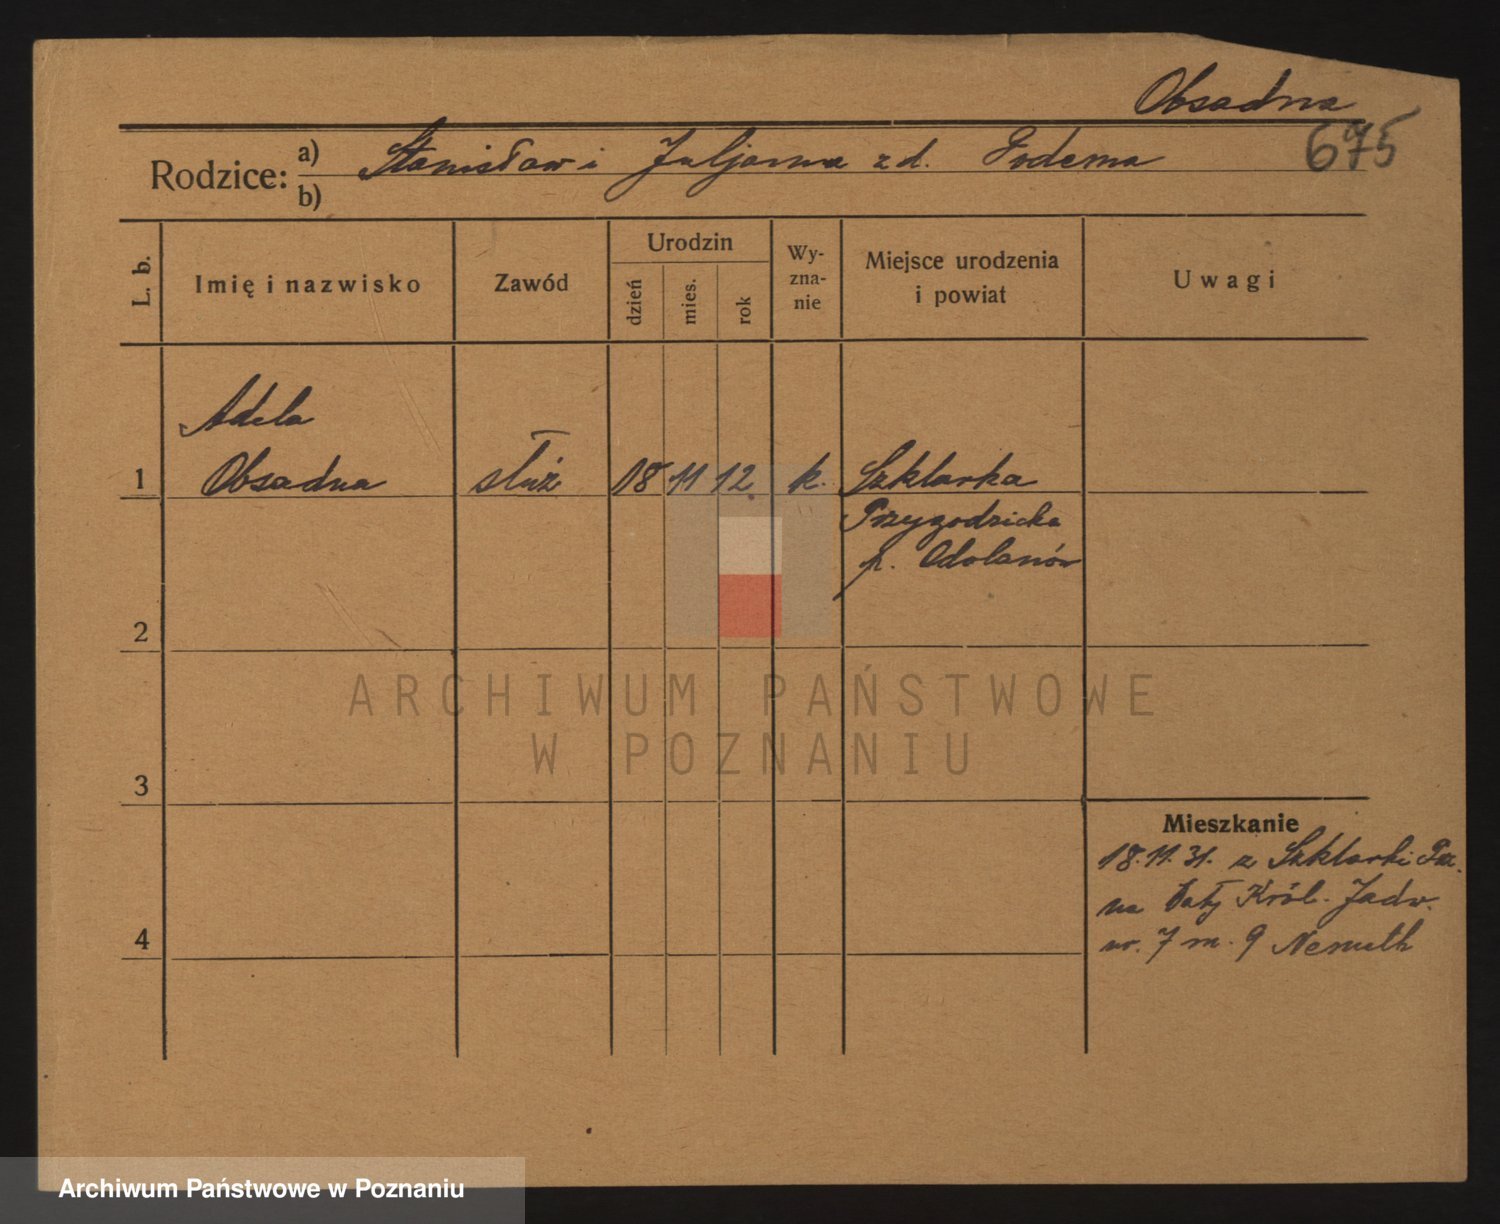 Obsadna
675
Rodzice: a) Stanisław i Juljanna z d. Podema
b)
L. b. Imię i nazwisko Zawód Urodzin dzień mies. rok Wy-zna-nie Miejsce urodzenia i powiat Uwagi
Adela
1 Obsadna służ 18 11 12 k. Szklarka
Przygodzicka
p. Odolanów
2
3
Mieszkanie
18.11.31. z Szklarki Prz.
na Król. Jadw.
4
nr. 7 m. 9 Nemuth
ARCHIWUM PAŃSTWOWE
W POZNANIU
Archiwum Państwowe w Poznaniu